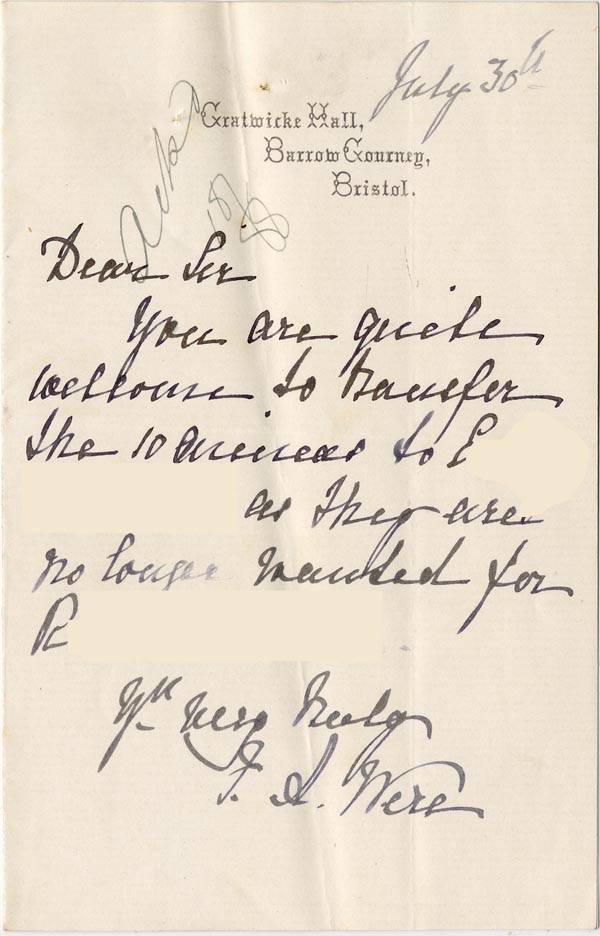 July 30th
Gratwicke Hall,
Barrow Gourney,
Bristol.
Dear Sir
You are quite
welcome to transfer
the 10 guineas to E
as they are
no longer wanted for
R
Yrs very truly
F. A. Were